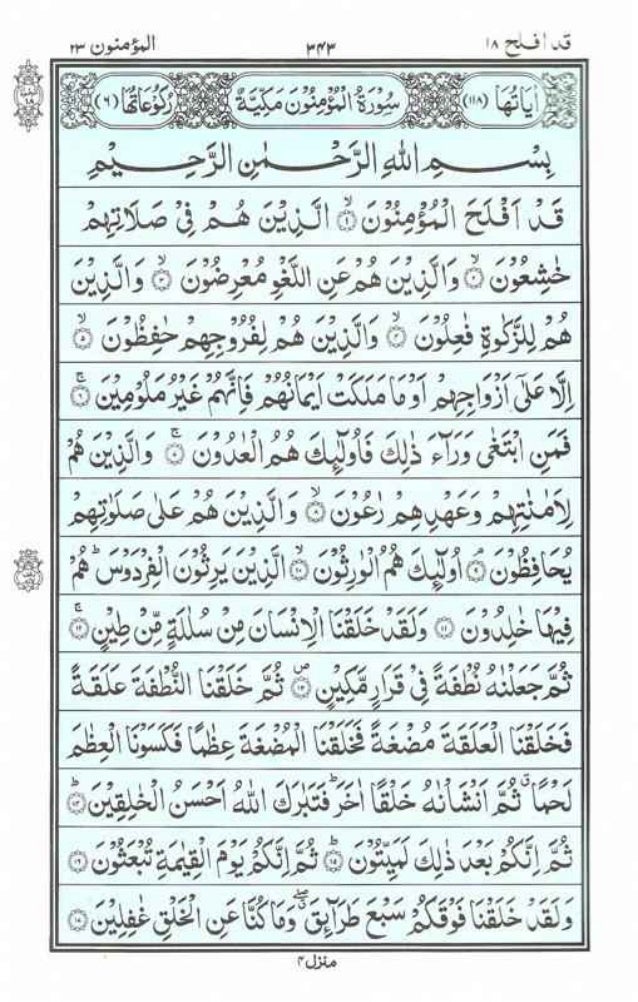 قد افلح ۱۸
۳۴۳
المؤمنون ۲۳
اٰيَاتُهَا (۱۱۸) سُوْرَةُ الْمُؤْمِنُوْنَ مَكِّيَّةٌ رُكُوْعَاتُهَا (۶)
بِسْمِ اللهِ الرَّحْمٰنِ الرَّحِيْمِ
قَدْ اَفْلَحَ الْمُؤْمِنُوْنَ ۙ‏﴿۱﴾ الَّذِيْنَ هُمْ فِيْ صَلَاتِهِمْ
خٰشِعُوْنَ ۙ‏﴿۲﴾ وَالَّذِيْنَ هُمْ عَنِ اللَّغْوِ مُعْرِضُوْنَ ۙ‏﴿۳﴾ وَالَّذِيْنَ
هُمْ لِلزَّكٰوةِ فٰعِلُوْنَ ۙ‏﴿۴﴾ وَالَّذِيْنَ هُمْ لِفُرُوْجِهِمْ حٰفِظُوْنَ ۙ‏﴿۵﴾
اِلَّا عَلٰٓى اَزْوَاجِهِمْ اَوْ مَا مَلَكَتْ اَيْمَانُهُمْ فَاِنَّهُمْ غَيْرُ مَلُوْمِيْنَ ۚ‏﴿۶﴾
فَمَنِ ابْتَغٰى وَرَآءَ ذٰلِكَ فَاُولٰٓئِكَ هُمُ الْعٰدُوْنَ ۚ‏﴿۷﴾ وَالَّذِيْنَ هُمْ
لِاَمٰنٰتِهِمْ وَعَهْدِهِمْ رٰعُوْنَ ۙ‏﴿۸﴾ وَالَّذِيْنَ هُمْ عَلٰى صَلَوٰتِهِمْ
يُحَافِظُوْنَ ۘ‏﴿۹﴾ اُولٰٓئِكَ هُمُ الْوٰرِثُوْنَ ۙ‏﴿۱۰﴾ الَّذِيْنَ يَرِثُوْنَ الْفِرْدَوْسَ ؕ هُمْ
فِيْهَا خٰلِدُوْنَ ﴿۱۱﴾ وَلَقَدْ خَلَقْنَا الْاِنْسَانَ مِنْ سُلٰلَةٍ مِّنْ طِيْنٍ ۚ‏﴿۱۲﴾
ثُمَّ جَعَلْنٰهُ نُطْفَةً فِيْ قَرَارٍ مَّكِيْنٍ ۪‏﴿۱۳﴾ ثُمَّ خَلَقْنَا النُّطْفَةَ عَلَقَةً
فَخَلَقْنَا الْعَلَقَةَ مُضْغَةً فَخَلَقْنَا الْمُضْغَةَ عِظٰمًا فَكَسَوْنَا الْعِظٰمَ
لَحْمًا ۗ ثُمَّ اَنْشَاْنٰهُ خَلْقًا اٰخَرَ ؕ فَتَبٰرَكَ اللهُ اَحْسَنُ الْخٰلِقِيْنَ ؕ‏﴿۱۴﴾
ثُمَّ اِنَّكُمْ بَعْدَ ذٰلِكَ لَمَيِّتُوْنَ ؕ‏﴿۱۵﴾ ثُمَّ اِنَّكُمْ يَوْمَ الْقِيٰمَةِ تُبْعَثُوْنَ ﴿۱۶﴾
وَلَقَدْ خَلَقْنَا فَوْقَكُمْ سَبْعَ طَرَآئِقَ ۖ وَمَا كُنَّا عَنِ الْخَلْقِ غٰفِلِيْنَ ﴿۱۷﴾
منزل ۴